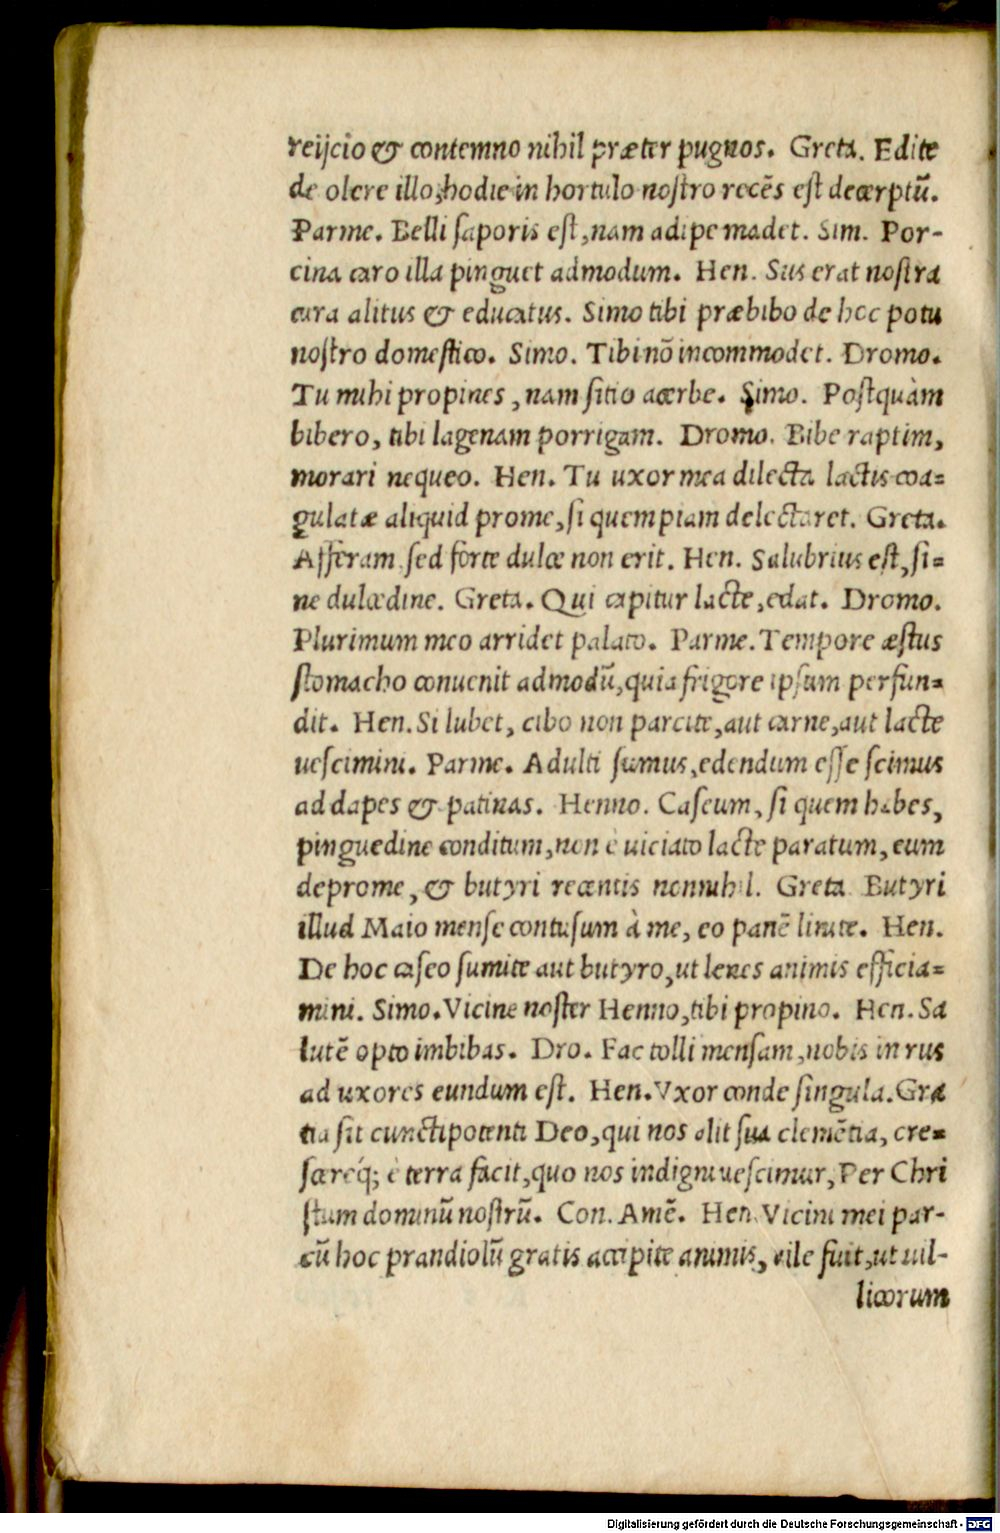 reijcio & contemno nihil præter pugnos. Greta. Edite
de olere illo, hodie in hortulo nostro recẽs est decerptũ.
Parme. Belli saporis est, nam adipe madet. Sim. Por-
cina caro illa pinguet admodum. Hen. Sus erat nostra
cura alitus & educatus. Simo tibi præbibo de hoc potu
nostro domestico. Simo. Tibi nõ incommodet. Dromo.
Tu mihi propines, nam sitio acerbe. Simo. Postquàm
bibero, tibi lagenam porrigam. Dromo. Bibe raptim,
morari nequeo. Hen. Tu uxor mea dilecta lactis coa=
gulatæ aliquid prome, si quempiam delectaret. Greta.
Afferam sed forte dulce non erit. Hen. Salubrius est, si=
ne dulcedine. Greta. Qui capitur lacte, edat. Dromo.
Plurimum meo arridet palato. Parme. Tempore æstus
stomacho conuenit admodũ, quia frigore ipsum perfun=
dit. Hen. Si lubet, cibo non parcite, aut carne, aut lacte
uescimini. Parme. Adulti sumus, edendum esse scimus
ad dapes & patinas. Henno. Caseum, si quem habes,
pinguedine conditum, non è uiciato lacte paratum, eum
deprome, & butyri recentis nonnihil. Greta Butyri
illud Maio mense contusum à me, eo panẽ linite. Hen.
De hoc caseo sumite aut butyro, ut lenes animis efficia=
mini. Simo. Vicine noster Henno, tibi propino. Hen. Sa
lutẽ opto imbibas. Dro. Fac tolli mensam, nobis in rus
ad uxores eundum est. Hen. Vxor conde singula. Gra
tia sit cunctipotenti Deo, qui nos alit sua clemẽtia, cre=
scereq́; è terra facit, quo nos indigni uescimur, Per Chri
stum dominũ nostrũ. Con. Amẽ. Hen. Vicini mei par-
cũ hoc prandiolũ gratis accipite animis, uile fuit, ut uil-
licorum
Digitalisierung gefördert durch die Deutsche Forschungsgemeinschaft - DFG